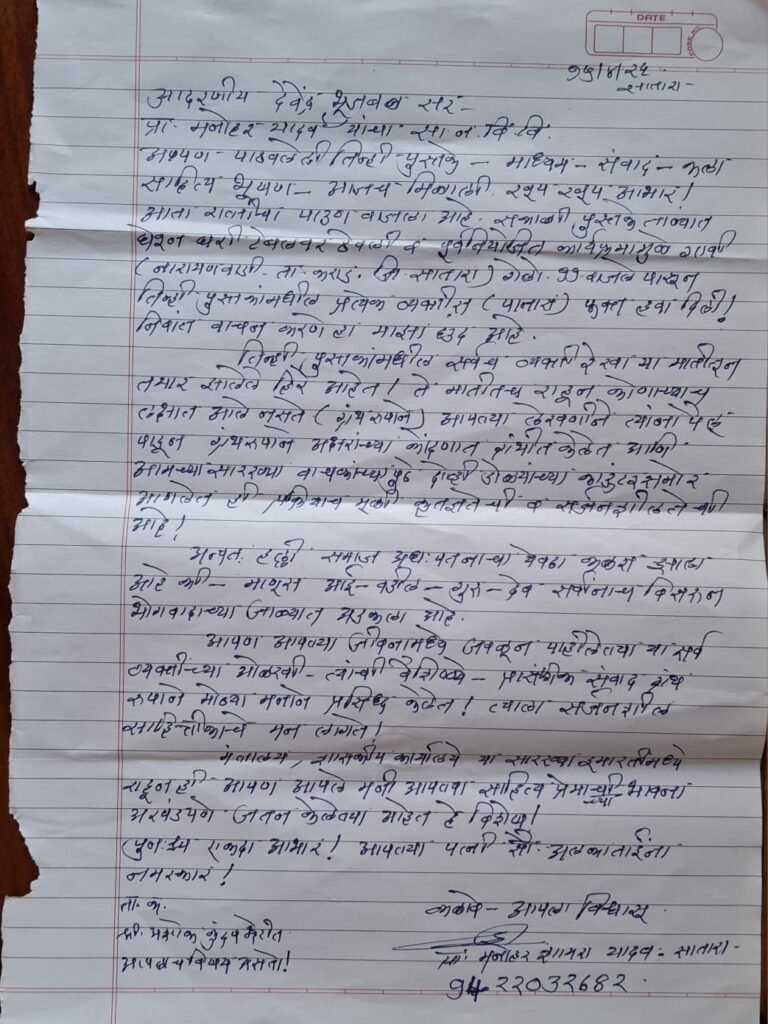 DATE
१५/४/२६
सातारा-
आदरणीय देवेंद्र भूजबळ सर-
प्रा. मनोहर यादव यांचा सा. न. वि. वि.
आपण पाठवलेली तिन्ही पुस्तके - माध्यम - संवाद - कला
साहित्य भूषण - आजच मिळाली. खूप खूप आभार!
आता रात्रीचा पाऊण वाजला आहे. सकाळी पुस्तके ताब्यात
घेऊन घरी टेबलवर ठेवली व पूर्वनियोजित कार्यक्रमामुळे गावी
(नारायणवाडी. ता. कराड. जि. सातारा) गेलो. ११ वाजले पासून
तिन्ही पुस्तकांमधील प्रत्येक व्यक्तीस (पानास) फक्त हवा दिली!
निवांत वाचन करणे हा माझा छंद आहे.
तिन्ही पुस्तकांमधील सर्वच व्यक्ती रेखा या मातीतून
तयार झालेले हिरे आहेत! ते मातीतच राहून कोणाच्याच
लक्षात आले नसते (ग्रंथरूपाने) आपल्या लेखणीने त्यांना पैलू
पाडून ग्रंथरूपाने अक्षरांच्या कोंदणात ग्रंथीत केलेत आणि
आमच्या सारख्या वाचकांच्या पुढे दोन्ही डोळ्यांच्या काउंटरसमोर
मांडलेत ही प्रक्रियाच मूळी कृतज्ञतेची व सर्जनशीलतेची
आहे!
अन्यत: हल्ली समाज अध:पतनाचा येवढा कळस झाला
आहे की - माणूस आई - वडील - गुरु - देव सर्वांनाच विसरून
भोगवादाच्या जाळ्यात अडकला आहे.
आपण आपल्या जीवनामध्ये जवळून पाहीलेल्या या सर्व
व्यक्तींच्या ओळखी - त्यांची वैशिष्ट्ये - प्रासंगीक संवाद ग्रंथ
रूपाने मोठ्या मनाने प्रसिध्द केलेत! त्याला सर्जनशील
साहित्तीकाचे मन लागते!
मंत्रालय, शासकीय कार्यालये या सारख्या इमारतीमध्ये
राहून ही आपण आपले मनी आपल्या साहित्य प्रेमाच्या भावना
अखंडपणे जतन केलेल्या आहेत हे विशेष!
पुण:श्च एकदा आभार! आपल्या पत्नी सौ. अलकाताईंना
नमस्कार!
ता. क.
श्री. अशोक कुंदप भेटीत
आपलाच विषय असतो!
कळावे - आपला विश्वासू
प्रा. मनोहर यादव - सातारा -
9422032682.